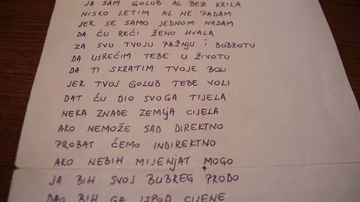 JA SAM GOLUB AL BEZ KRILA
NISKO LETIM AL NE PADAM
JER SE SAMO JEDNOM NADAM
DA ĆU REĆI ŽENO HVALA
ZA SVU TVOJU PAŽNJU i DOBROTU
DA USREĆIM TEBE U ŽIVOTU
DA TI SKRATIM TVOJE BOLI
JER TVOJ GOLUB TEBE VOLI
DAT ĆU DIO SVOGA TIJELA
NEKA ZNADE ZEMLJA CIJELA
AKO NEMOŽE SAD DIREKTNO
PROBAT ĆEMO INDIREKTNO
AKO NEBIH MIJENJAT MOGO
JA BIH SVOJ BUBREG PRODO
DAO BIH GA ISPOD CIJENE